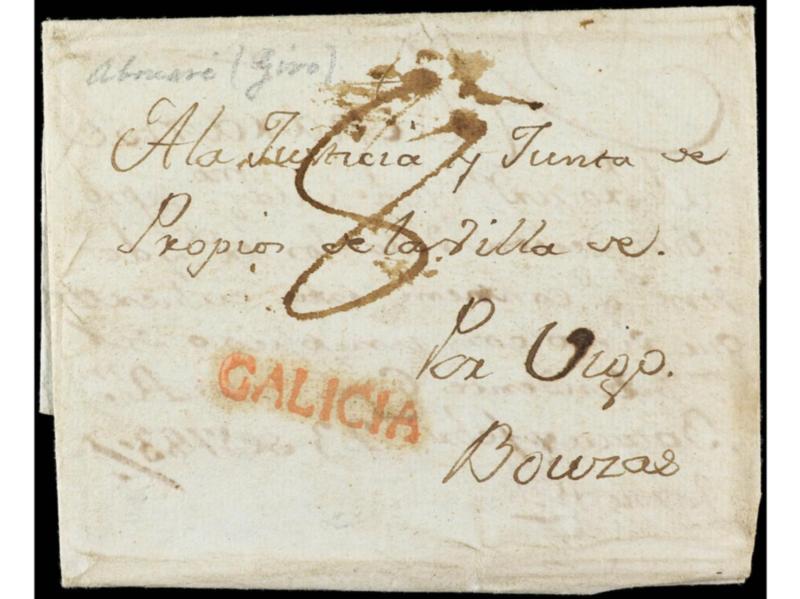 (Giro)
A la Justicia y Junta de
8
Propios de la Villa de.
Por Vigo.
GALICIA
Bouzas